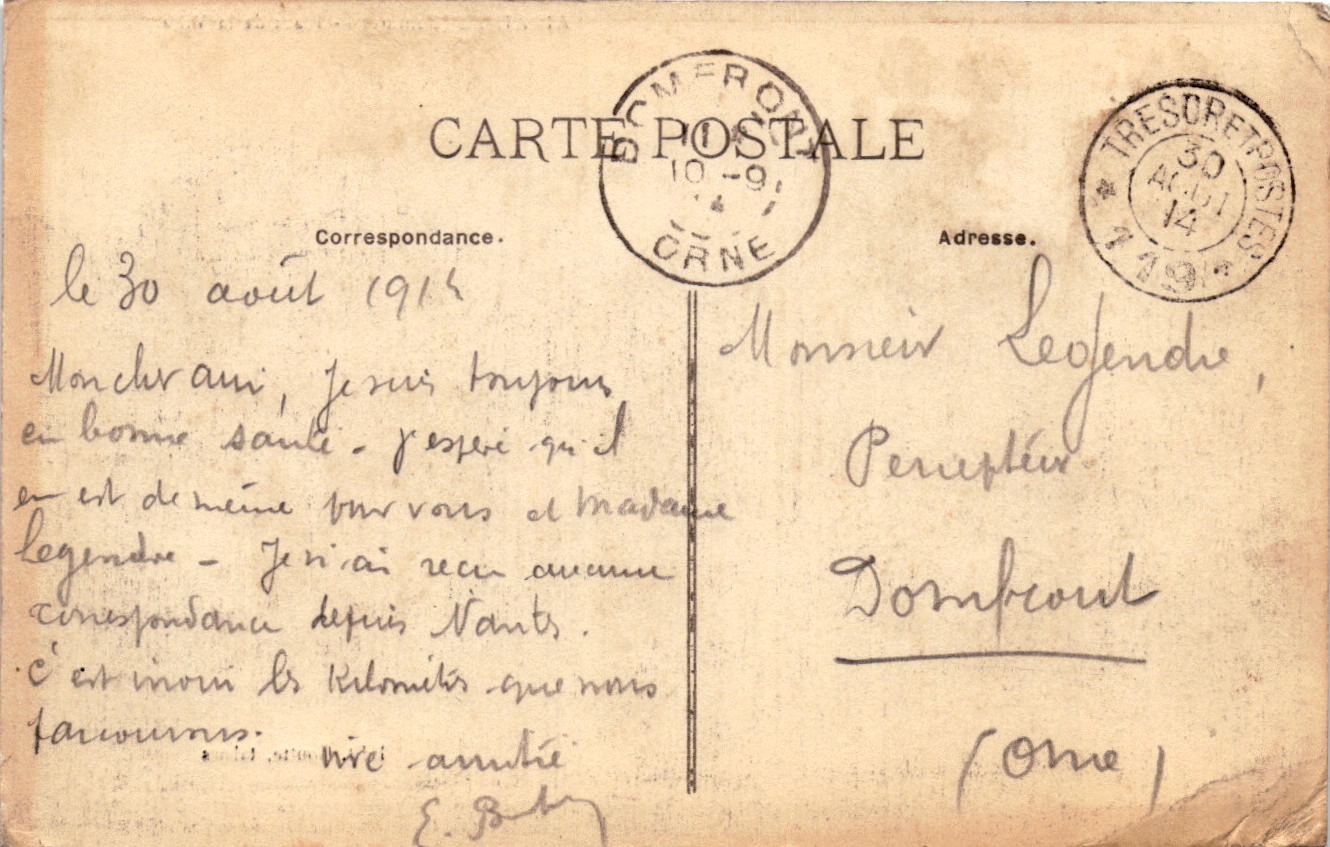 CARTE POSTALE
DOMFRONT
11
10 -9
14
ORNE
TRESOR ET POSTES
30
AOUT
14
* 119 *
Correspondance.
Adresse.
le 30 août 1914
Mon cher ami, Je suis toujours
en bonne santé - J'espère qu'il
en est de même pour vous et Madame
Legendre - Je n'ai reçu aucune
correspondance depuis Nantes.
C'est inouï les Kilomètres que nous
parcourons.
vive amitié
E.
Monsieur Legendre,
Percepteur
Domfront
(Orne)